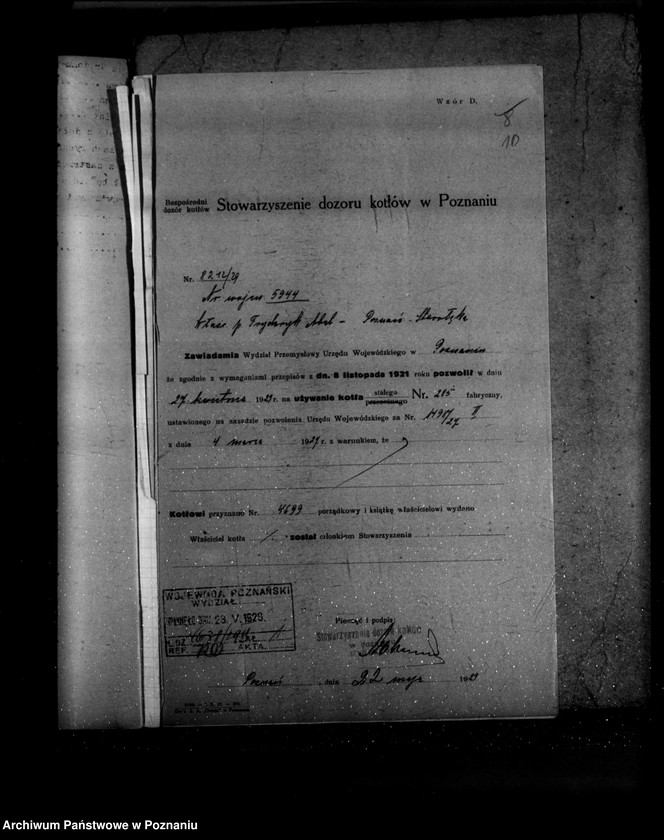 Wzór D.
8
10
Bezpośredni
dozór kotłów
Stowarzyszenie dozoru kotłów w Poznaniu
Nr. 8212/29
Nr wojew. 5944
Właśc. p. Fryderyk Abel - Poznań - Starołęka
Zawiadamia Wydział Przemysłowy Urzędu Wojewódzkiego w Poznaniu
że zgodnie z wymaganiami przepisów z dn. 8 listopada 1921 roku pozwolił w dniu
27 kwietnia 1929 r. na używanie kotła stałego przenośnego Nr. 285 fabryczny,
ustawionego na zasadzie pozwolenia Urzędu Wojewódzkiego za Nr. /27 II
z dnia 4 marca 1927 r. z warunkiem, że
Kotłowi przyznano Nr. 4699 porządkowy i książkę właścicielowi wydano
Właściciel kotła został członkiem Stowarzyszenia
WOJEWODA POZNAŃSKI
WYDZIAŁ
23. V. 1929.
L. DZ.
REF. AKTA.
Pieczęć i podpis:
Stowarzyszenia dozoru kotłów
Poznań, dnia 22 maja 1929
Archiwum Państwowe w Poznaniu